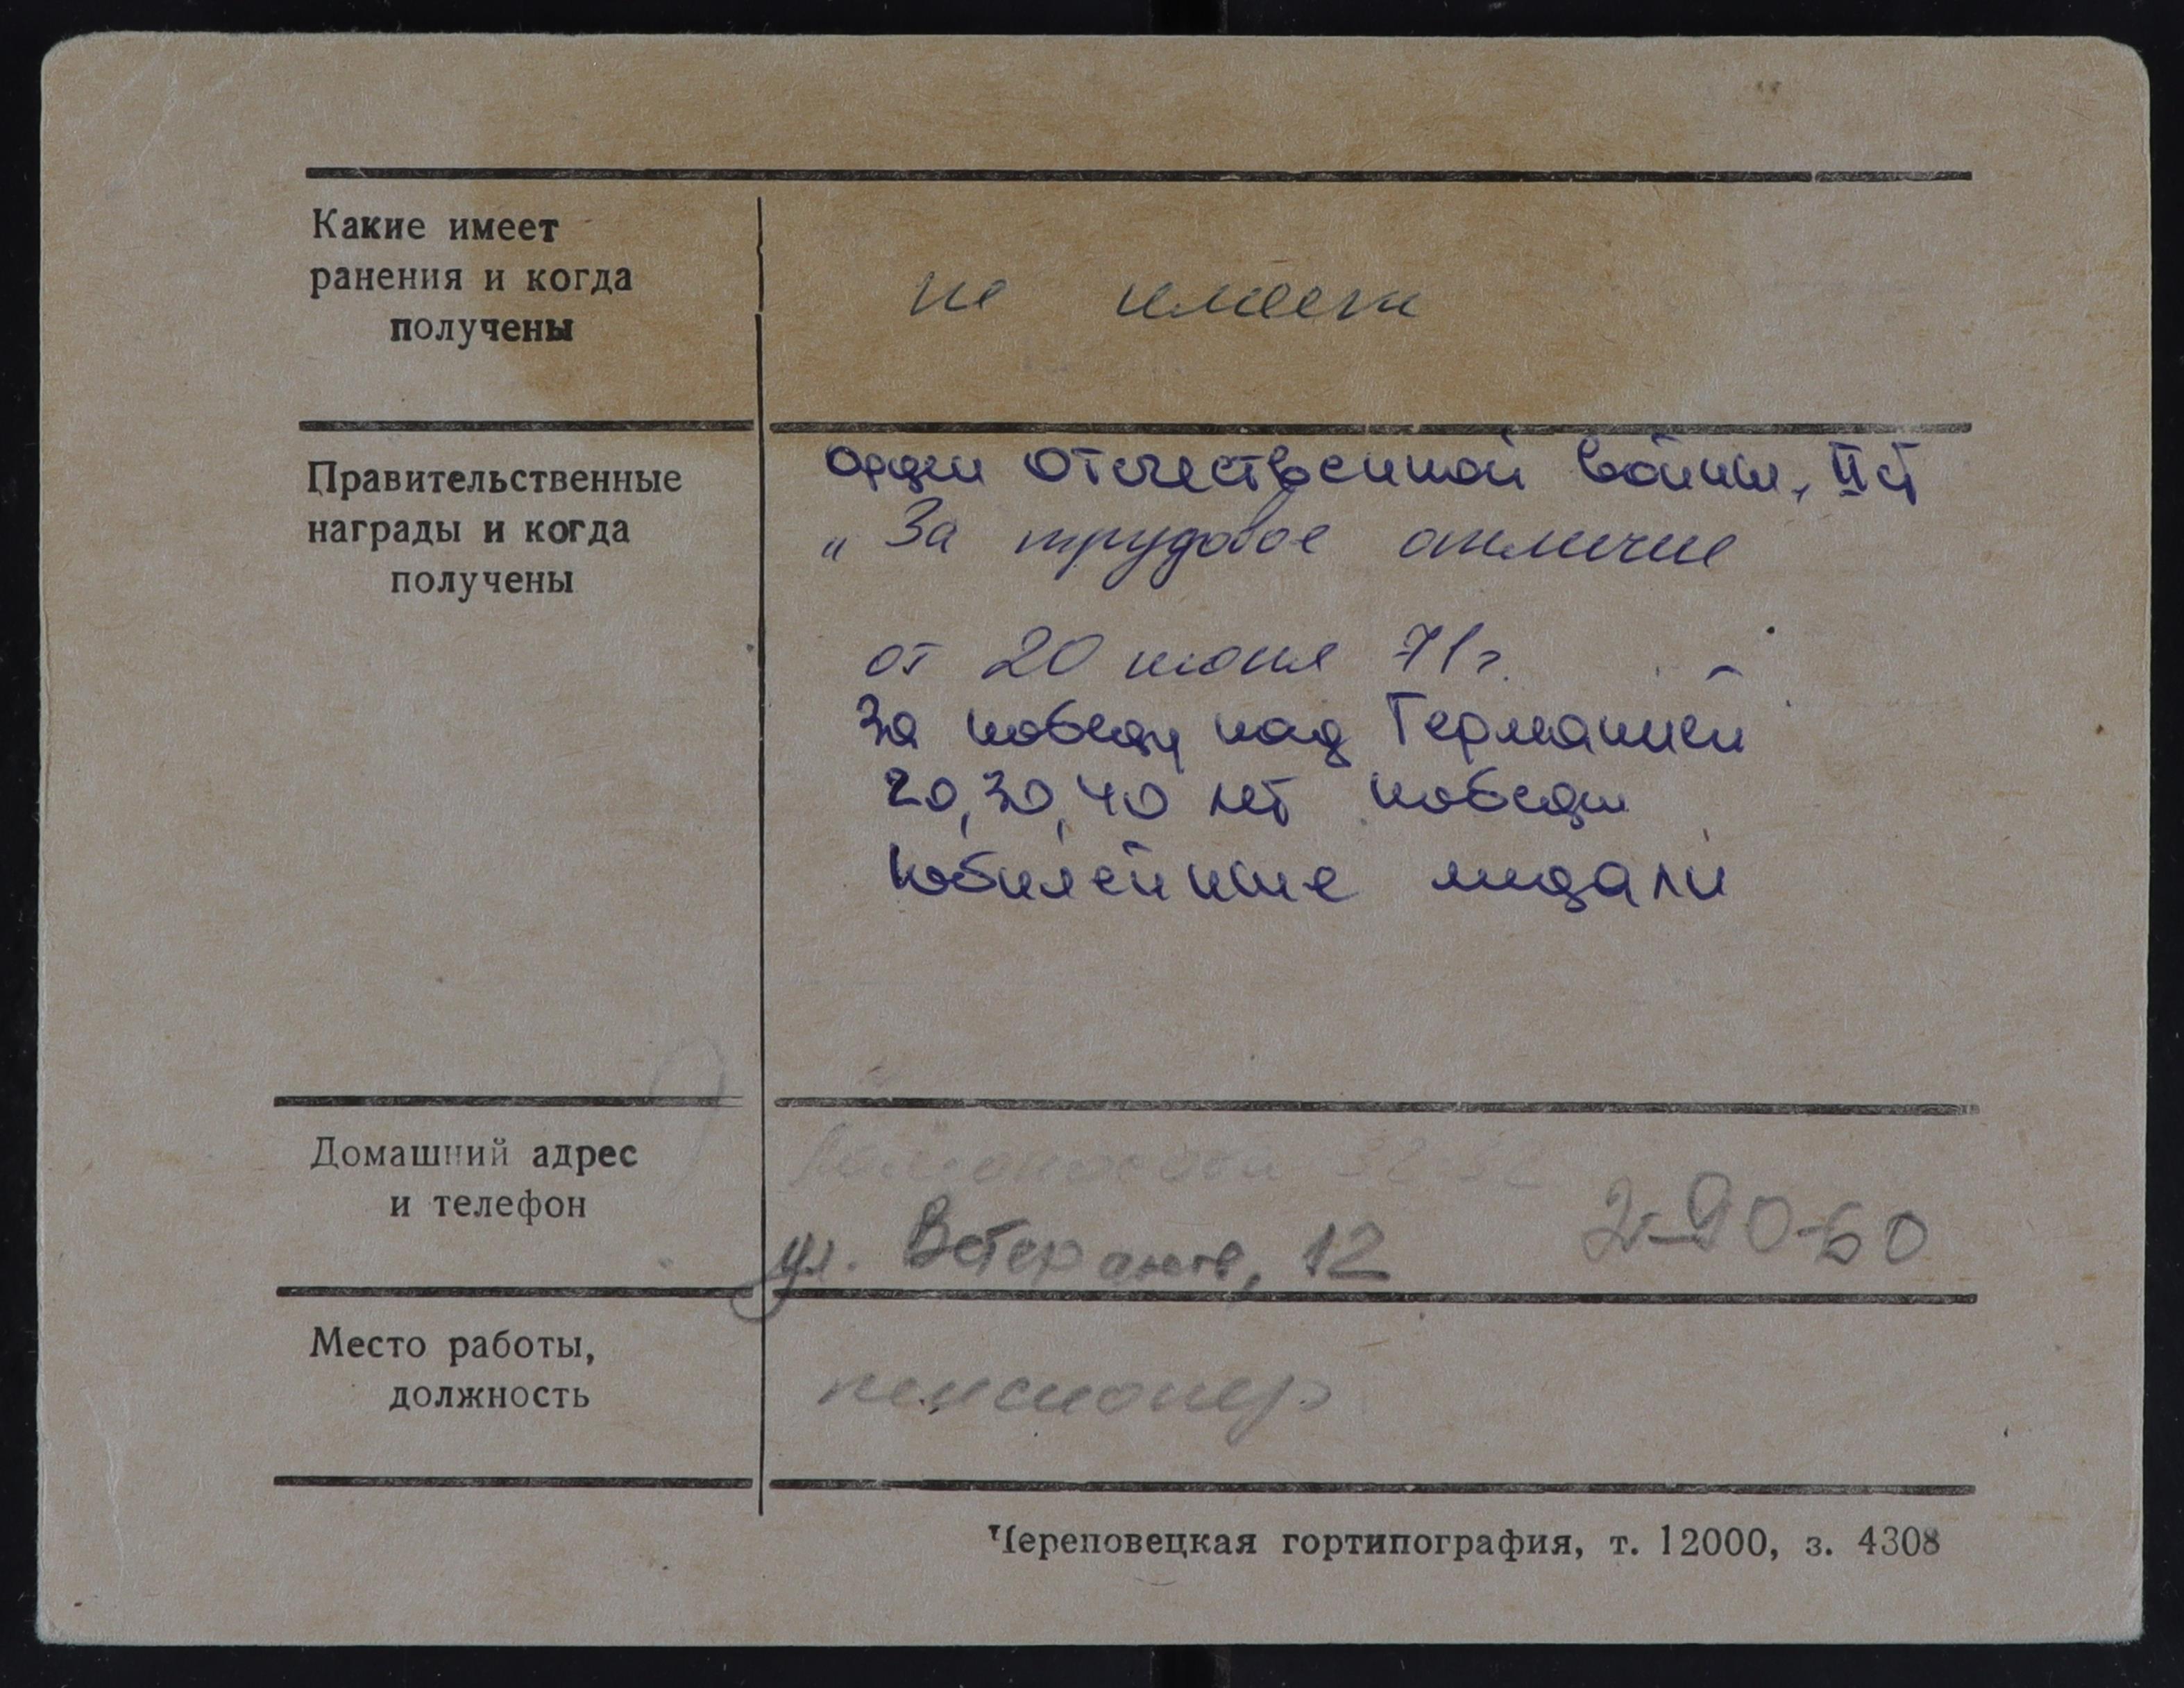 Какие имеет
ранения и когда
получены
не имеет
Правительственные
награды и когда
получены
орден Отечественной войны, II ст
„За трудовое отличие
от 20 июля 71г.
За победу над Германией
20, 30, 40 лет победы
юбилейные медали
Домашний адрес
и телефон
32-32
ул. Ветеранов, 12
2-90-60
Место работы,
должность
пенсионер
Череповецкая гортипография, т. 12000, з. 4308